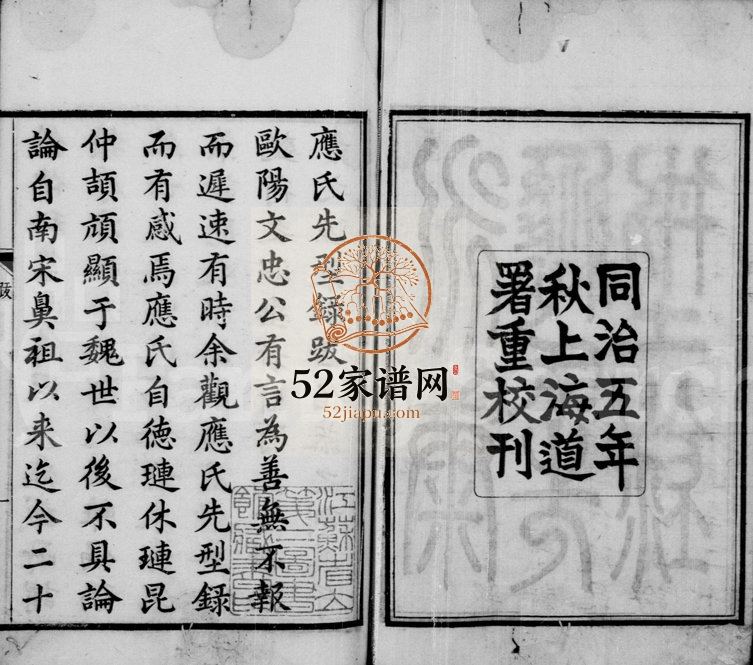 同治五年
秋上海道
署重校刊
應氏先型錄跋
歐陽文忠公有言為善無不報
而遲速有時余觀應氏先型錄
而有感焉應氏自德璉休璉昆
仲頡頏顯于魏世以後不具論
論自南宋鼻祖以来迄今二十
跋
52家谱网
52jiapu.com